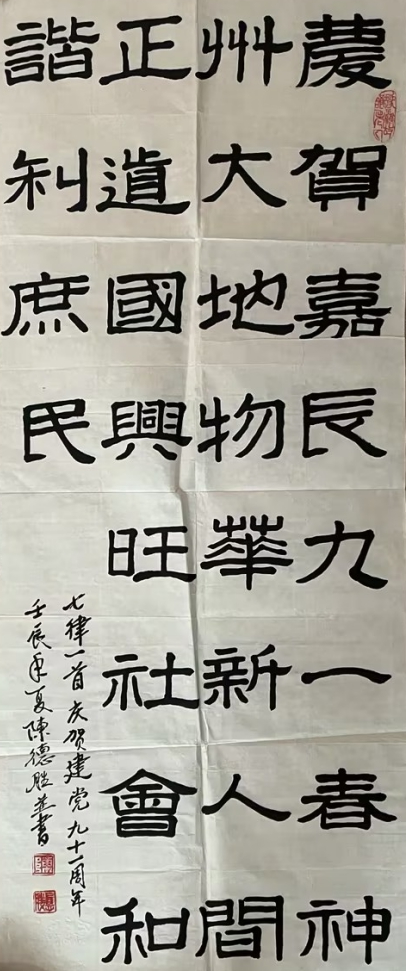 慶賀嘉辰九一春神
州大地物華新人間
正道國興旺社會和
諧利庶民
七律一首庆贺建党九十一周年
壬辰年夏陳德勝並書